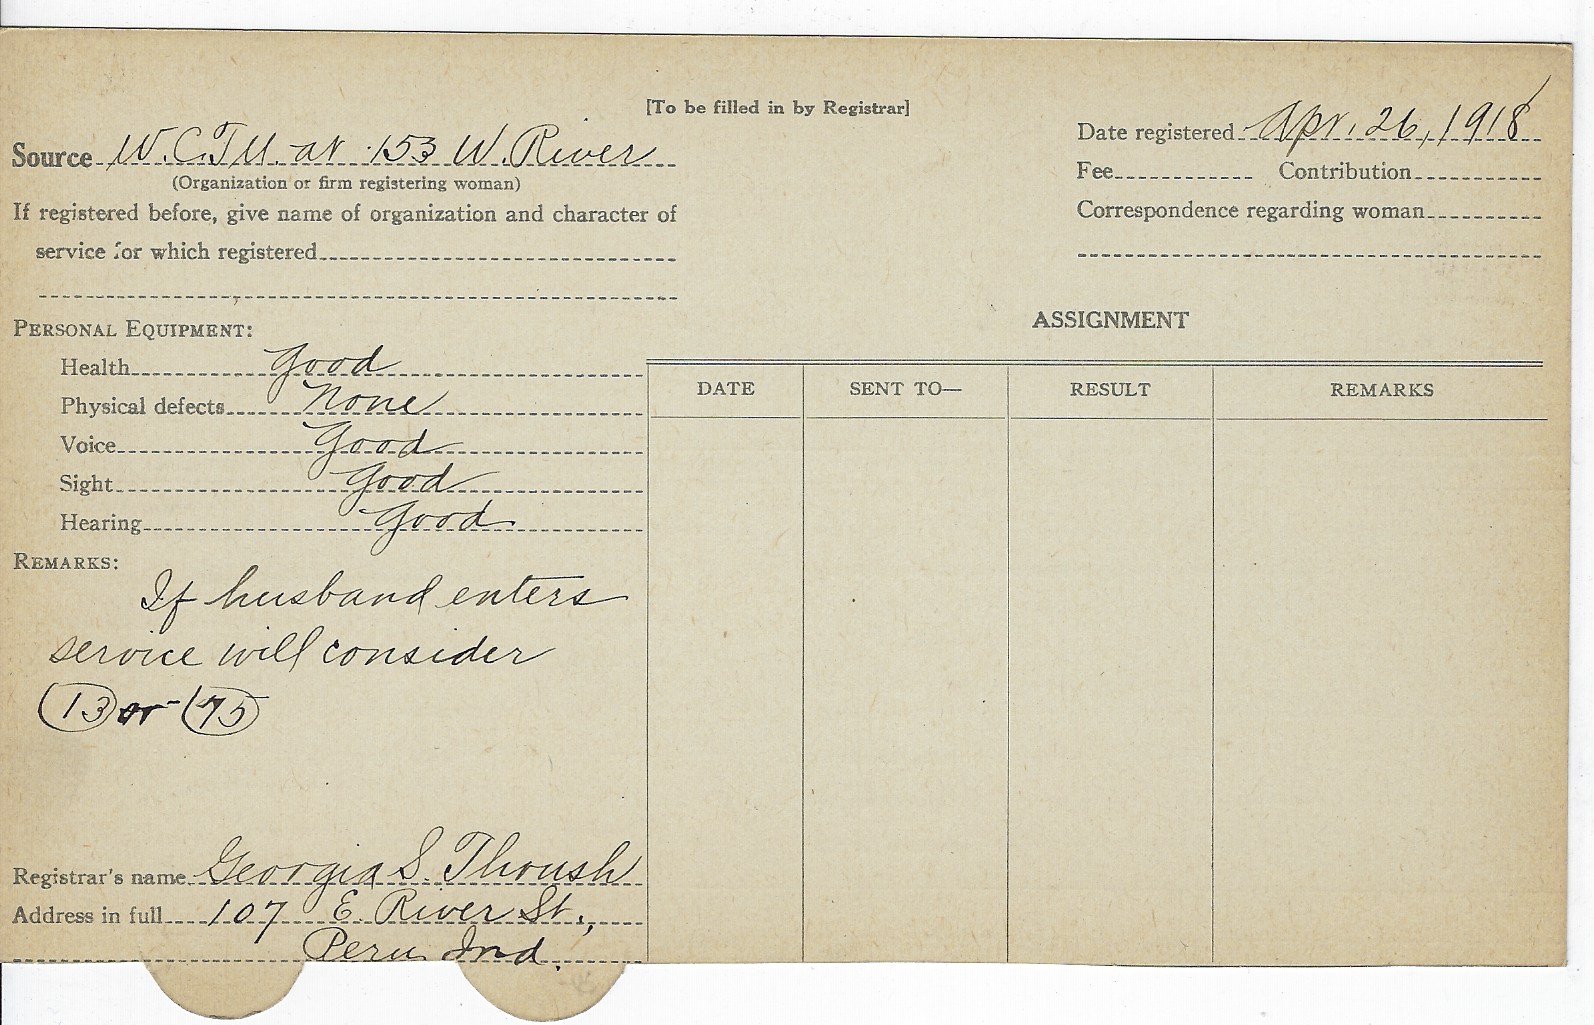 [To be filled in by Registrar]
Source W.C.T.U. at 153 W. River
(Organization or firm registering woman)
If registered before, give name of organization and character of
service for which registered
PERSONAL EQUIPMENT:
Health Good
Physical defects None
Voice Good
Sight Good
Hearing Good
REMARKS:
If husband enters
service will consider
(13) or (75)
Registrar's name Georgia S. Thoush
Address in full 107 E. River St.,
Peru Ind.
Date registered Apr. 26, 1918
Fee Contribution
Correspondence regarding woman
ASSIGNMENT
DATE SENT TO— RESULT REMARKS